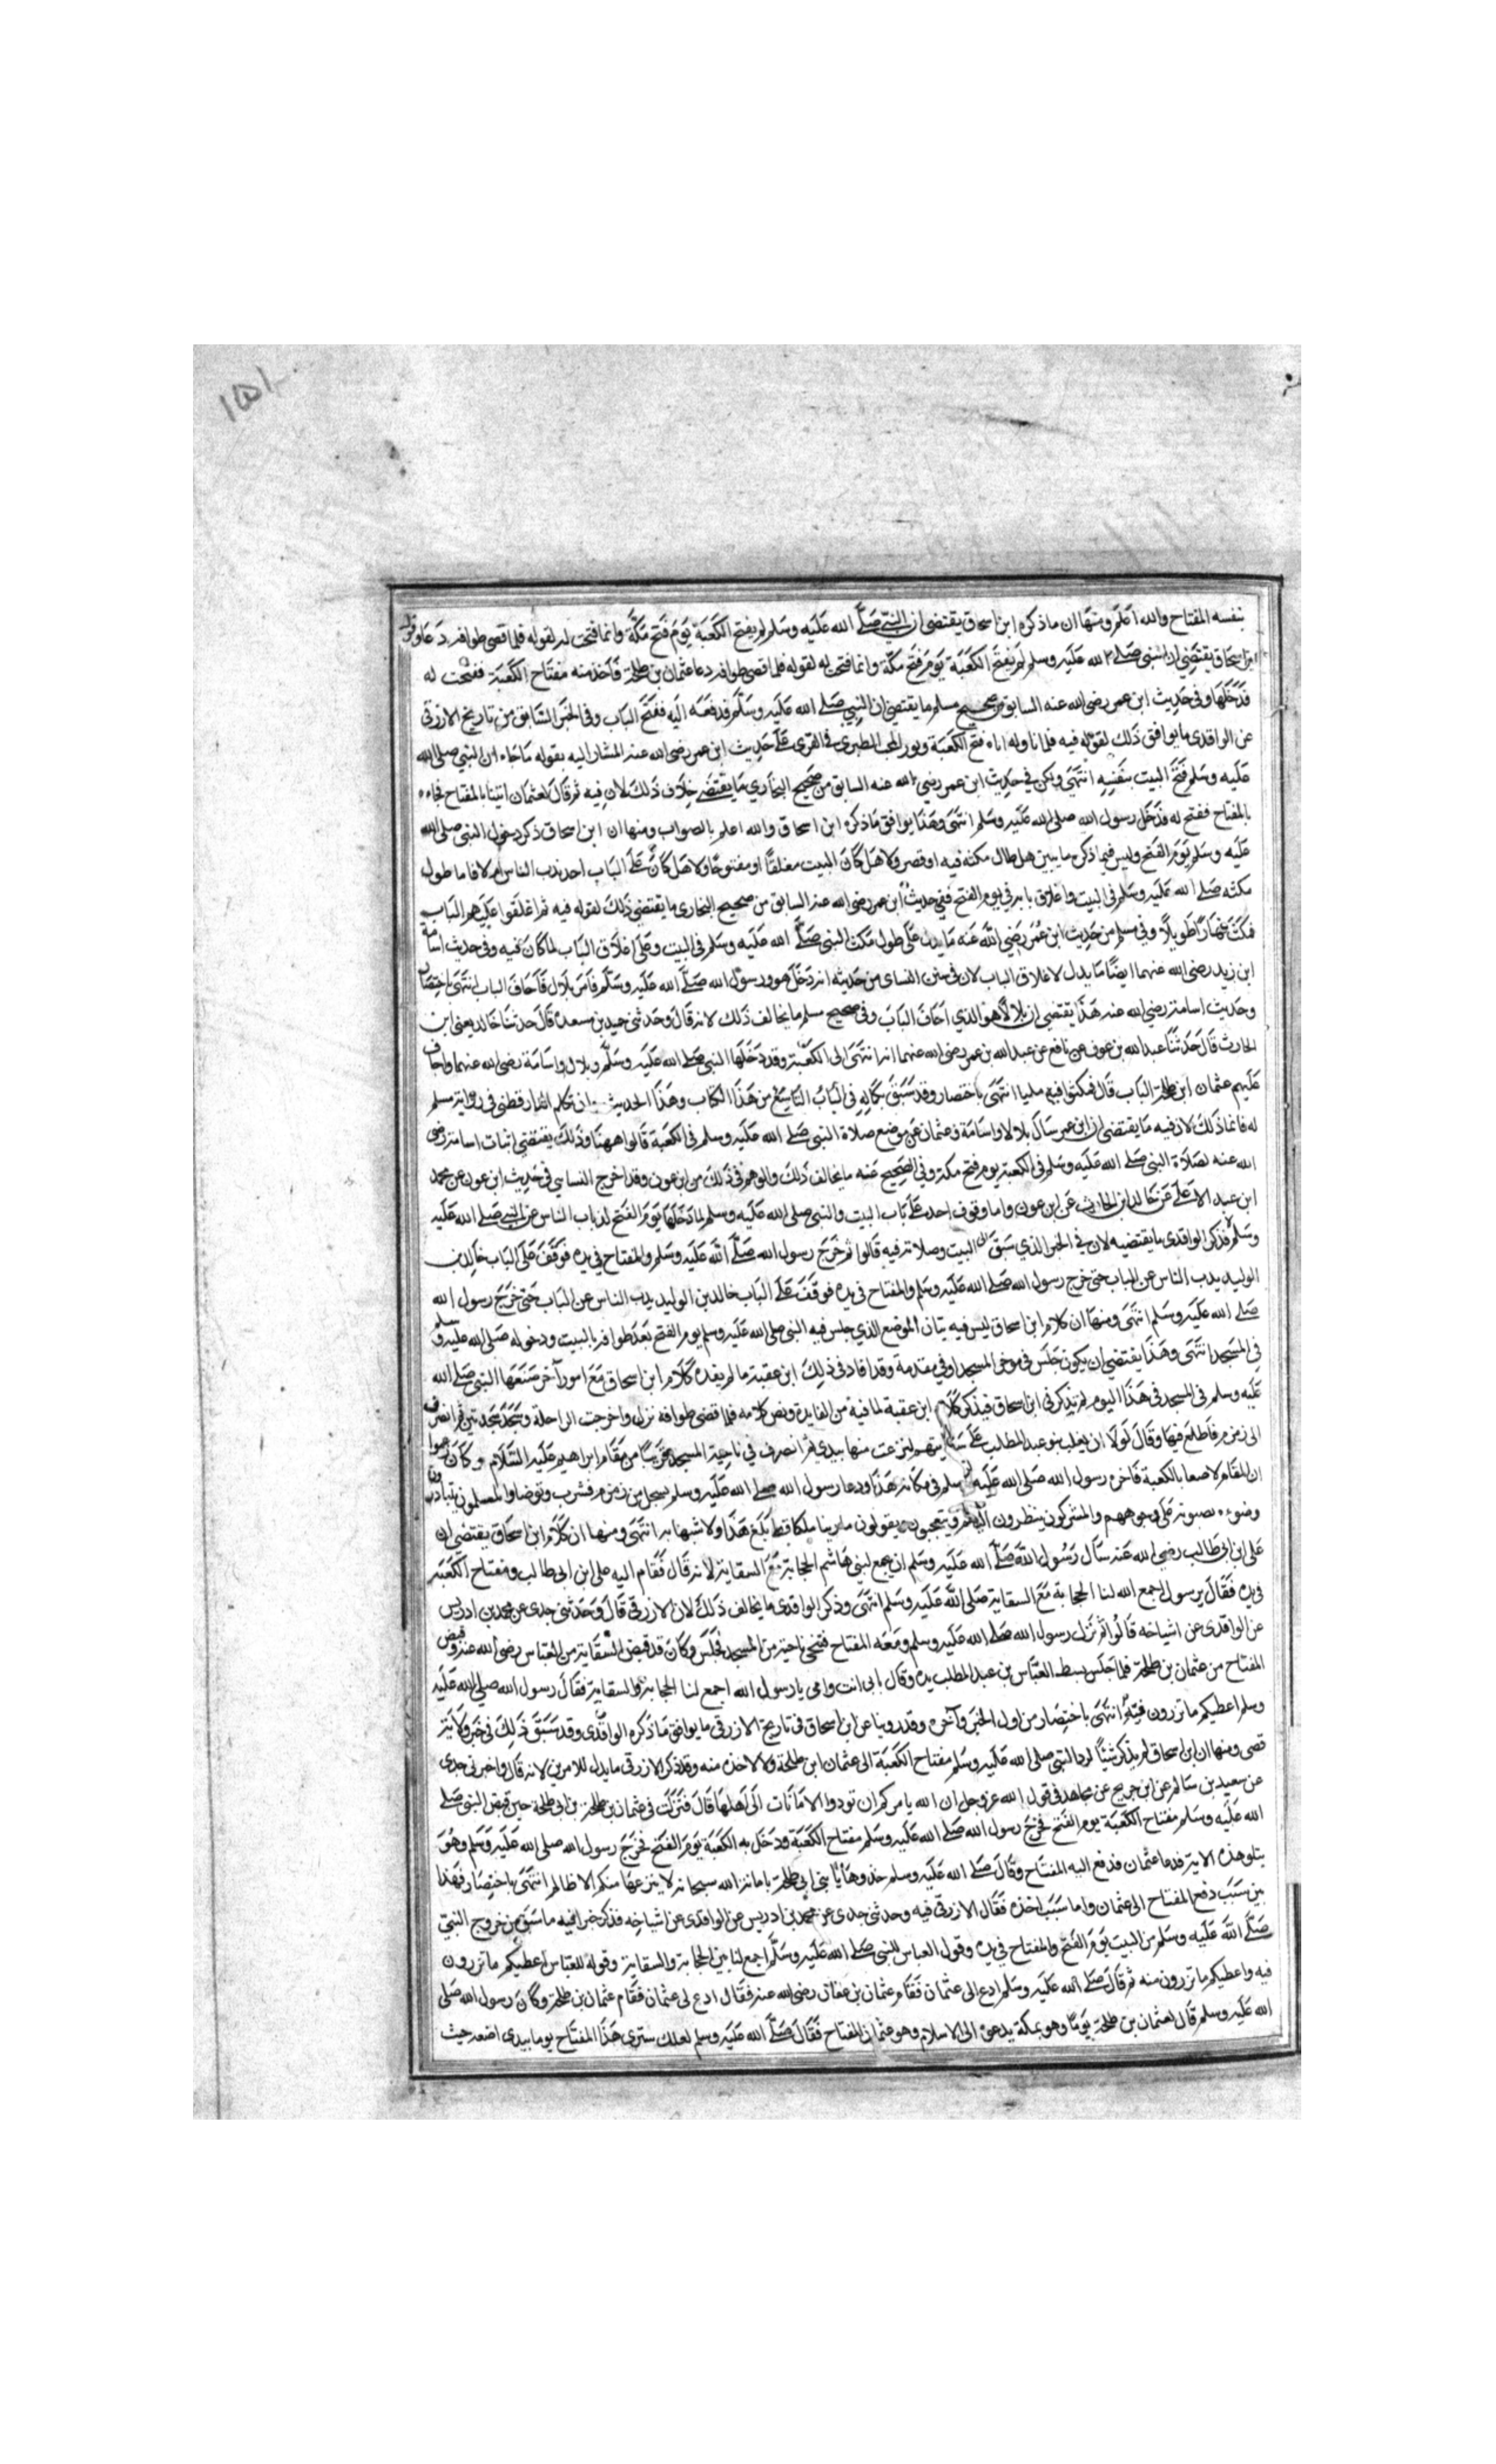 ١٥١
بنفسه المفتاح والله اعلم ومنها ان ما ذكره ابن اسحاق يقتضى ان النبي صلى الله عليه وسلم لم يفتح الكعبة يوم فتح مكة وانما فتحت له لقوله فلما قضى طوافه دعا
ابن اسحاق يقتضى ان النبي صلى الله عليه وسلم لم يفتح الكعبة يوم فتح مكة وانما فتحت له لقوله فلما قضى طوافه دعا عثمان بن طلحة فاخذ منه مفتاح الكعبة ففتحت له
فدخلها وفى حديث ابن عمر رضى الله عنه السابق من صحيح مسلم ما يقتضى ان النبي صلى الله عليه وسلم فدفعه اليه ففتح الباب وفى الخبر السابق من تاريخ الازرقى
عن الواقدى ما يوافق ذلك لقوله فيه فلما ناوله اياه فتح الكعبة وبور المحب الطبرى فى القرى على حديث ابن عمر رضى الله عنه المشار اليه بقوله ما جاء ان النبي صلى الله
عليه وسلم فتح البيت بنفسه انتهى ولكن فى حديث ابن عمر رضي الله عنه السابق من صحيح البخاري ما يقتضى خلاف ذلك لان فيه ثم قال لعثمان ايتنا بالمفتاح فجاءه
بالمفتاح ففتح له فدخل رسول الله صلى الله عليه وسلم انتهى وهذا يوافق ما ذكره ابن اسحاق والله اعلم بالصواب ومنها ان ابن اسحاق ذكر دخول النبى صلى الله
عليه وسلم يوم الفتح وليس فيما ذكره ما يبين هل طال مكثه فيه او قصر ولا هل كان البيت مغلقا او مفتوحا ولا هل كان على الباب احد يذب الناس ام لا فاما طول
مكثه صلى الله عليه وسلم فى البيت واغلاق بابه فى يوم الفتح ففى حديث ابن عمر رضى الله عنه السابق من صحيح البخارى ما يقتضى ذلك لقوله فيه ثم اغلقوا عليهم الباب
فمكث نهارا طويلا وفى مسلم من حديث ابن عمر رضي الله عنه ما يدل على طول مكث النبى صلى الله عليه وسلم فى البيت وعلى اغلاق الباب لما كان فيه وفى حديث اسامة
ابن زيد رضى الله عنهما ايضا ما يدل لاغلاق الباب لان فى سنن النساى من حديثه انه دخل هو ورسول الله صلى الله عليه وسلم فامر بلال فاجاف الباب انتهى باختصار
وحديث اسامة رضي الله عنه هذا يقتضى ان بلالا هو الذي اجاف الباب وفى صحيح مسلم ما يخالف ذلك لانه قال وحدثنى حميد بن مسعده قال حدثنا خالد يعنى ابن
الحارث قال حدثنا عبد الله بن عوف عن نافع عن عبد الله بن عمر رضى الله عنهما انه انتهى الى الكعبة وقد دخلها النبي صلى الله عليه وسلم وبلال واسامة رضى الله عنهما واجاف
عليهم عثمان ابن طلحة الباب قال فمكثوا فيه مليا انتهى باختصار وقد سبق بكماله فى الباب التاسع من هذا الكتاب وهذا الحديث تكلم الدار قطنى فى رواية مسلم
له فانما ذلك لان فيه ما يقتضى ان ابن عمر سال بلالا واسامة وعثمان عن موضع صلاة النبي صلى الله عليه وسلم فى الكعبة قالوا ههنا وذلك يقتضى اثبات اسامة رضى
الله عنه لصلاة النبى صلى الله عليه وسلم فى الكعبة يوم فتح مكة وفى الصحيح عنه ما يخالف ذلك والوهم فى ذلك من ابن عون وقد اخرج النساىي فى حديث ابن عون عن محمد
ابن عبد الاعلى عن خالد ابن الحارث عن ابن عون واما وقوف احد على باب البيت والنبي صلى الله عليه وسلم لما دخلها يوم الفتح لذب الناس عن النبي صلى الله عليه
وسلم فذكر الواقدى ما يقتضيه لان فى الخبر الذي سبق الى البيت وصلاته فيه قالوا ثم خرج رسول الله صلى الله عليه وسلم والمفتاح فى يده فوقف على الباب خالد بن
الوليد يذب الناس عن الباب حتى خرج رسول الله صلى الله عليه وسلم والمفتاح فى يده فوقف على الباب خالد بن الوليد يذب الناس عن الباب حتى خرج رسول الله
صلى الله عليه وسلم انتهى ومنها ان كلام ابن اسحاق ليس فيه بيان الموضع الذي جلس فيه النبى صلى الله عليه وسلم يوم الفتح بعد طوافه بالبيت ودخوله صلى الله عليه وسلم
فى المسجد انتهى وهذا يقتضى ان يكون جلس فى موخر المسجد او فى مقدمة وقد افاد فى ذلك ابن عقبة ما لم يفده كلام ابن اسحاق مع امور آخر صنعها النبي صلى الله
عليه وسلم فى المسجد فى هذا اليوم لم يذكر فى ابن اسحاق فيذكر كلام ابن عقبة لما فيه من الفايدة ونص كلامه فلما قضى طوافه نزل واخرجت الراحلة وسجد سجدتين ثم انصرف
الى زمزم فاطلع فيها وقال لولا ان يغلب بنو عبد المطلب على سقايتهم لنزعت منها بيدي ثم انصرف فى ناحية المسجد قريبا من مقام ابراهيم عليه السلام وكان زعموا
ان المقام لاصقا بالكعبة فاخره رسول الله صلى الله عليه وسلم فى مكانه هذا ودعا رسول الله صلى الله عليه وسلم بسجل من زمزم فشرب وتوضا والمسلمون يتبادرون
وضوءه يصبونه على وجوههم والمشركون ينظرون اليهم ويتعجبون ويقولون ما رينا ملكا قط بلغ هذا ولا شبها به انتهى ومنها ان كلام ابن اسحاق يقتضى ان
على ابن ابى طالب رضى الله عنه سال رسول الله صلى الله عليه وسلم ان يجمع لبنى هاشم الحجابة مع السقاية لانه قال فقام اليه على ابن ابى طالب ومفتاح الكعبة
فى يده فقال يرسول اجمع الله لنا الحجابة مع السقاية صلى الله عليه وسلم انتهى وذكر الواقدى ما يخالف ذلك لان الازرقى قال وحدثنى جدى عن محمد بن ادريس
عن الواقدى عن اشياخه قالوا ثم نزل رسول الله صلى الله عليه وسلم ومعه المفتاح فتنحى ناحية من المسجد فجلس وكان قد قبض السقاية من العباس رضى الله عنه وقبض
المفتاح من عثمان بن طلحة فلما جلس بسط العباس بن عبد المطلب يده وقال بابى انت وامى يا رسول الله اجمع لنا الحجابة والسقاية فقال رسول الله صلى الله عليه
وسلم اعطيكم ما ترزون فيه انتهى باختصار من اول الخبر وآخره وقد روينا عن ابن اسحاق فى تاريخ الازرقى ما يوافق ما ذكره الواقدى وقد سبق ذلك فى خبر ولاية
قصى ومنها ان ابن اسحاق لم يذكر شيئا لرد النبي صلى الله عليه وسلم مفتاح الكعبة الى عثمان ابن طلحة ولا لاخذه منه وقد ذكر الازرقى ما يدل للامرين لانه قال واخبرنى جدى
عن سعيد بن سالم عن ابن جريج عن مجاهد فى قول الله عز وجل ان الله يامركم ان تودوا الامانات الى اهلها قال فنزلت فى عثمان بن طلحة بن ابى طلحة حين قبض النبى صلى
الله عليه وسلم مفتاح الكعبة يوم الفتح فخرج رسول الله صلى الله عليه وسلم مفتاح الكعبة ودخل به الكعبة يوم الفتح فخرج رسول الله صلى الله عليه وسلم وهو
يتلو هذه الاية فدعا عثمان فدفع اليه المفتاح وقال صلى الله عليه وسلم خذوها يا بنى ابى طلحة بامانة الله سبحانه لا ينزعها منكم الا ظالم انتهى باختصار فهذا
بين سبب دفع المفتاح الى عثمان واما سبب اخذه فقال الازرقى فيه وحدثنى جدى عن محمد بن ادريس عن الواقدى عن اشياخه فذكر خبرا فيه ما سبق من خروج النبي
صلى الله عليه وسلم من البيت يوم الفتح والمفتاح فى يده وقول العباس للنبى صلى الله عليه وسلم اجمع لنا بين الحجابة والسقاية وقوله للعباس اعطيكم ما ترزون
فيه واعطيكم ما ترزون منه ثم قال صلى الله عليه وسلم ادع الى عثمان فقام عثمان بن عفان رضى الله عنه فقال ادع لى عثمان فقام عثمان بن طلحة وكان رسول الله صلى
الله عليه وسلم قال لعثمان بن طلحة يوما وهو بمكة يدعو الى الاسلام وهو عثمان المفتاح فقال صلى الله عليه وسلم لعلك سترى هذا المفتاح يوما بيدى اضعه حيث